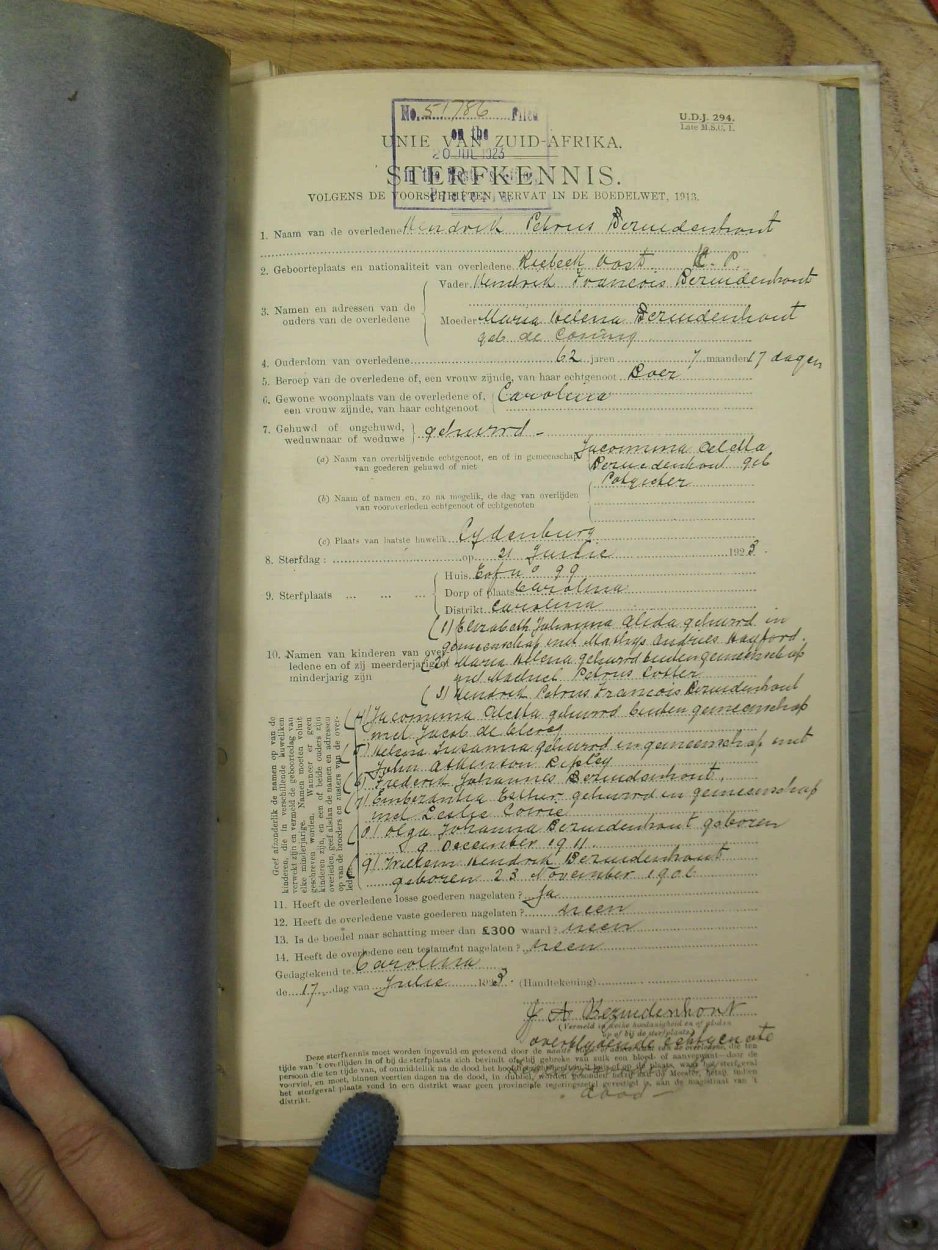 No. 51786 Filed
on the
20 JUL 1923
U.D.J. 294.
Late M.S.C. 1.
UNIE VAN ZUID-AFRIKA.
STERFKENNIS.
VOLGENS DE VOORSCHRIFTEN VERVAT IN DE BOEDELWET, 1913.
1. Naam van de overledene Hendrik Petrus Bezuidenhout
2. Geboorteplaats en nationaliteit van overledene Riebeek Oost K. P.
3. Namen en adressen van de ouders van de overledene
Vader Hendrik Francois Bezuidenhout
Moeder Maria Helena Bezuidenhout
geb de Coning
4. Ouderdom van overledene 62 jaren 7 maanden 17 dagen
5. Beroep van de overledene of, een vrouw zijnde, van haar echtgenoot Boer
6. Gewone woonplaats van de overledene of, Carolina
een vrouw zijnde, van haar echtgenoot
7. Gehuwd of ongehuwd, weduwnaar of weduwe gehuwd -
(a) Naam van overblijvende echtgenoot, en of in gemeenschap Jacomina Aletta
van goederen gehuwd of niet Bezuidenhout geb
Potgieter
(b) Naam of namen en, zo na mogelik, de dag van overlijden
van vooroverleden echtgenoot of echtgenoten
(c) Plaats van laatste huwelik Lydenburg
8. Sterfdag: op 21 Junie 1923.
9. Sterfplaats ... ... ...
Huis Erf no 99
Dorp of plaats Carolina
Distrikt Carolina
10. Namen van kinderen van overledene en of zij meerderjarig of minderjarig zijn
(1) Elizabeth Johanna Alida gehuwd in
gemeenschap met Mathys Andries
(2) Maria Helena gehuwd buiten gemeenschap
met Petrus
(3) Hendrik Petrus Francois Bezuidenhout
(4) Jacomina Aletta gehuwd buiten gemeenschap
met Jacob de Clercq
(5) Helena Susanna gehuwd in gemeenschap met
John Atkinton Ripley
(6) Frederik Johannes Bezuidenhout.
(7) Esther gehuwd in gemeenschap
met Leslie
(8) Olga Johanna Bezuidenhout geboren
9 December 1911.
(9) Willem Hendrik Bezuidenhout
geboren 23 November 1906
Geef afzonderlik de namen op van de
kinderen, die in verschillende huweliken
verwekt zijn en vermeld de geboortedag van
elke minderjarige. Namen moeten voluit
geschreven worden. Wanneer er geen
kinderen zijn, en een of beide ouders zijn
overleden, geef alsdan de namen en adressen
op van de broeders en zusters van de overledene.
11. Heeft de overledene losse goederen nagelaten? Ja
12. Heeft de overledene vaste goederen nagelaten? neen
13. Is de boedel naar schatting meer dan £300 waard? neen
14. Heeft de overledene een testament nagelaten? neen
Gedagtekend te Carolina
de 17 dag van Julie 1923. (Handtekening)
J A Bezuidenhout
(Vermeld in welke hoedanigheid en of
op of bij de sterfplaats)
overblydende echtgenote
Deze sterfkennis moet worden ingevuld en getekend door de
tijde van 't overlijden in of bij de sterfplaats zich bevindt of bij gebreke van zulk een bloed- of aanverwant—door de
persoon die ten tijde van, of onmiddellik na de dood het
voorviel, en moet, binnen veertien dagen na de dood, in dubbel, worden gezonden
het sterfgeval plaats vond in een distrikt waar geen provinciale regeringszetel gevestigd is, aan de magistraat van 't
distrikt.
dood -